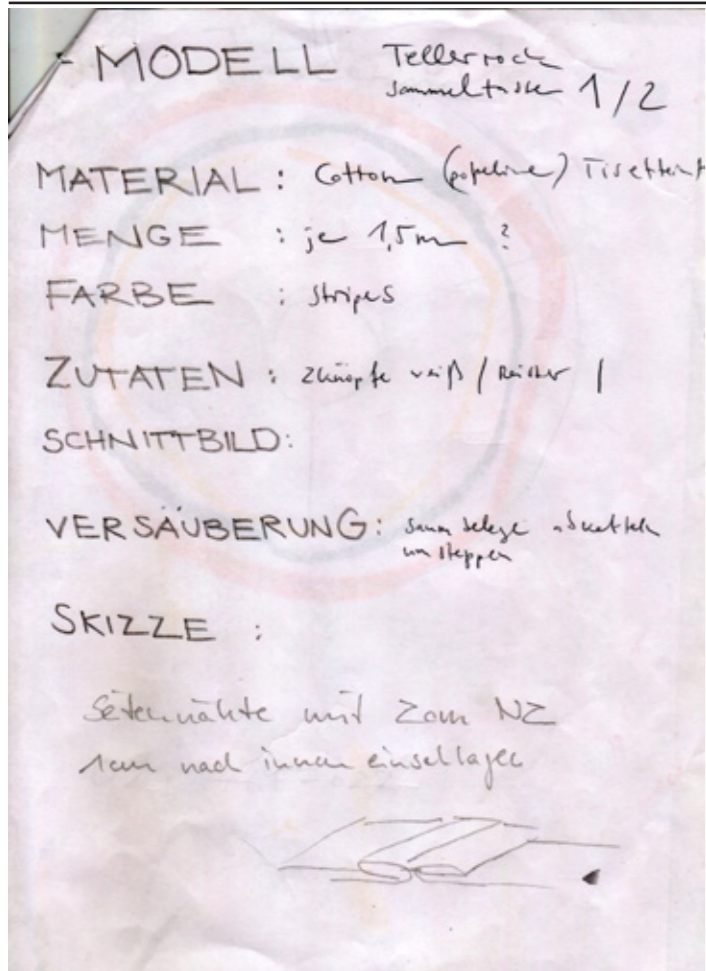 - MODELL Tellerrock
1/2
MATERIAL : Cotton (popeline)
MENGE : je 1,5m ?
FARBE : Stripes
ZUTATEN : Knöpfe weiß / /
SCHNITTBILD:
VERSÄUBERUNG: Saum belege
umsteppen
SKIZZE :
Seitennähte mit 2cm NZ
1cm nach innen einschlagen